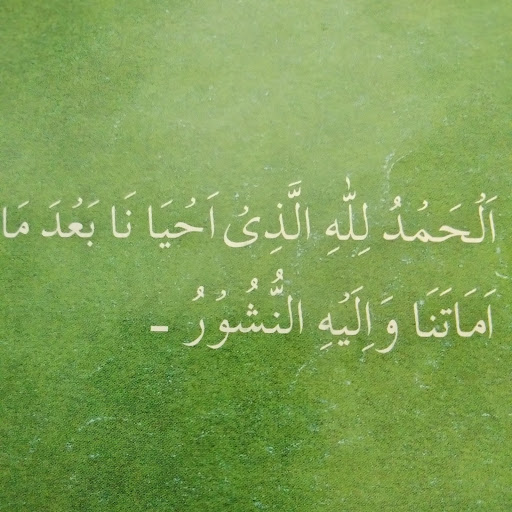 اَلْحَمْدُ لِلّٰهِ الَّذِىْ اَحْيَا نَا بَعْدَ مَا
اَمَاتَنَا وَاِلَيْهِ النُّشُوْرُ -